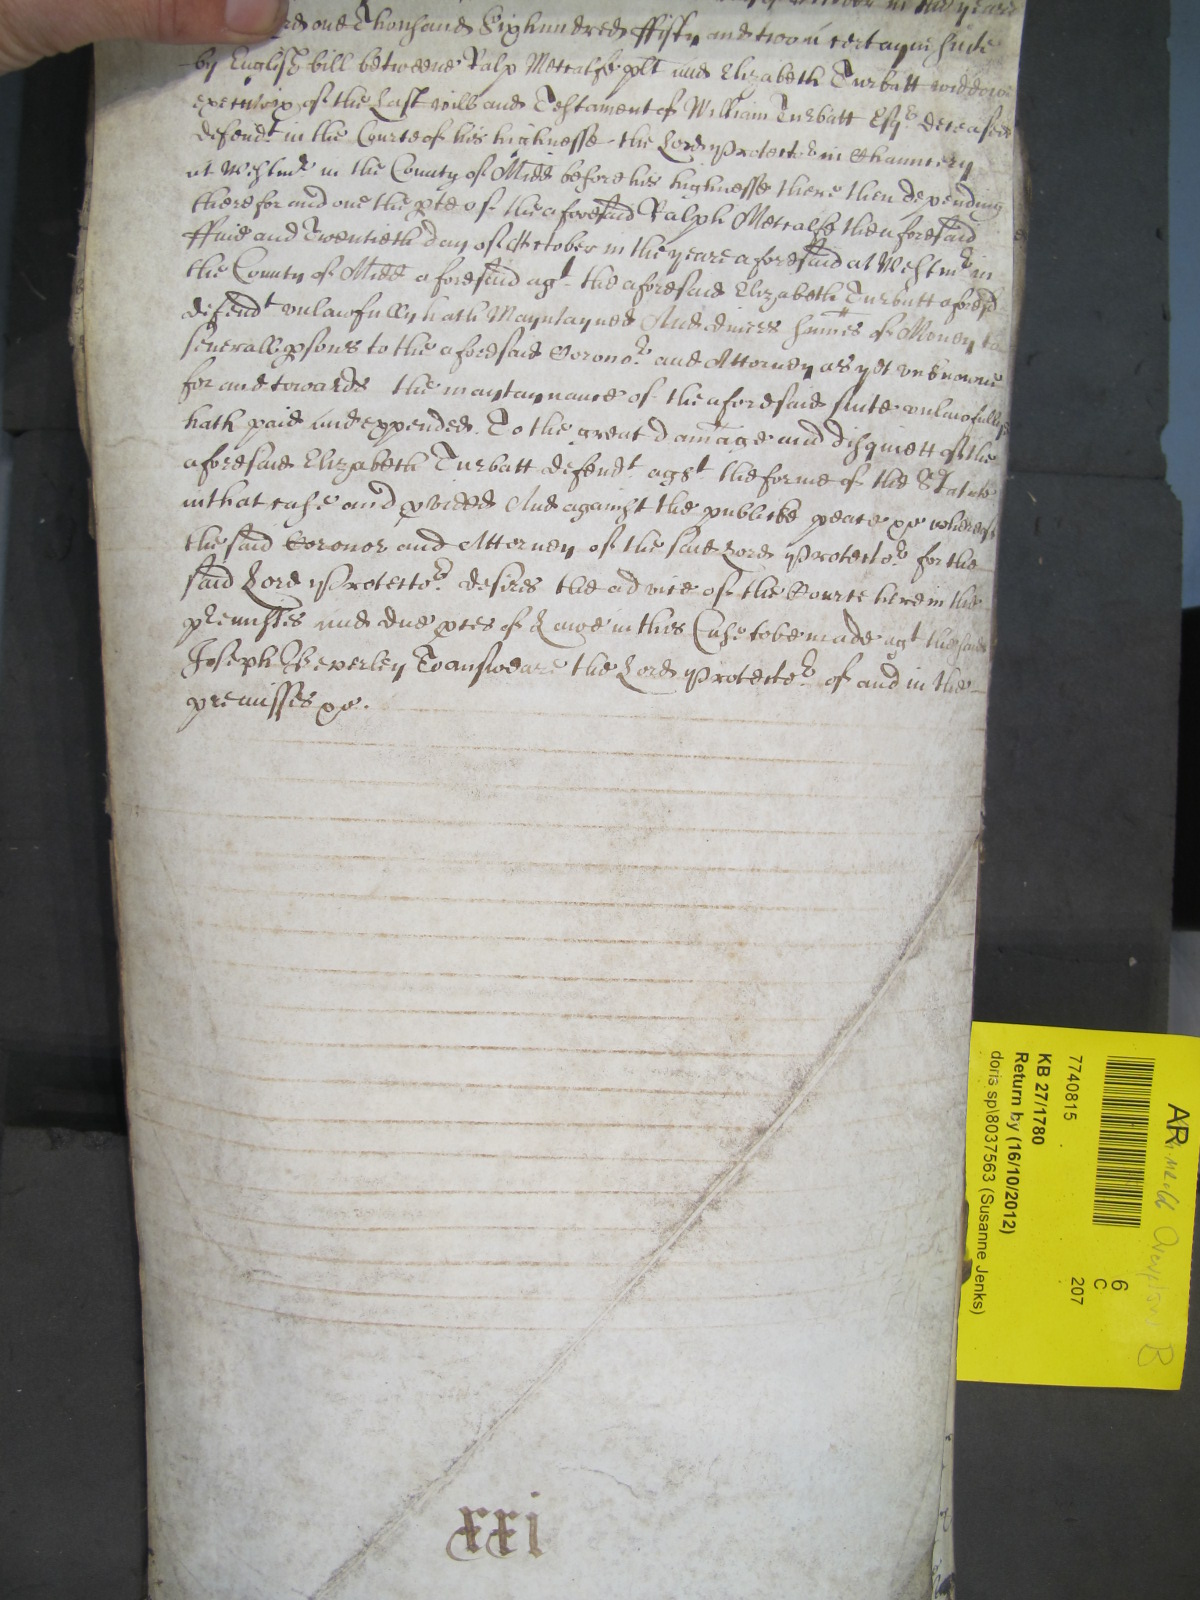 of October in the yeare
one Thousand Sixhundred ffifty and twoo a certayne suite
by English bill betweene Ralp Metcalfe plt and Elizabeth Turbatt widdow
executrix of the Last will and Testament of William Turbatt Esqr. deceased
defendt in the Courte of his highnesse the Lord Protector in Chauncery
at Westmr in the County of Midd before his highnesse there then depending
there for and one the pte of the aforesaid Ralph Metcalfe the aforesaid
and Twentieth day of October in the yeare aforesaid at Westmr in
the County of Midd aforesaid agt the aforesaid Elizabeth Turbutt aforesd
defendt unlawfully hath Mayntayned And divers summes of Money to
severall psons to the aforesaid Coronor and Attorney as yet unknowne
for and towards the mayntaynance of the aforesaid suite unlawfully
hath paid and expended To the great Damage and disquiett of the
aforesaid Elizabeth Turbatt defendt agst the forme of the Statute
in that case and pvided And against the publicke peace &c whereof
the said Coronor and Attorney of the said Lord Protector for the
said Lord Protector desires the advice of the Courte here in the
premisses and due pces of Lawe in this Case to be made agt the said
Joseph Beverley To answeare the Lord Protector of and in the
premisses &c.
xxi
AR
6
C
207
7740815
KB 27/1780
Return by (16/10/2012)
doris sp\8037563 (Susanne Jenks)